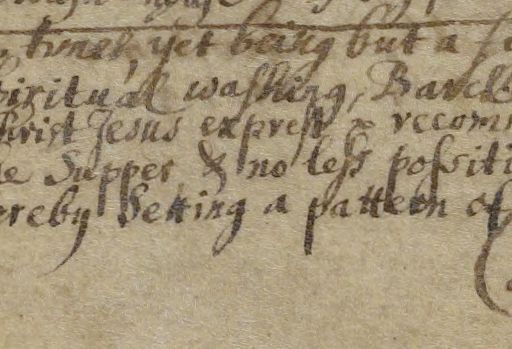 times, yet being but a
piritual washing, Barely
hrist Jesus exprest & recom
e Supper & no less positi
ereby Setting a pattern of